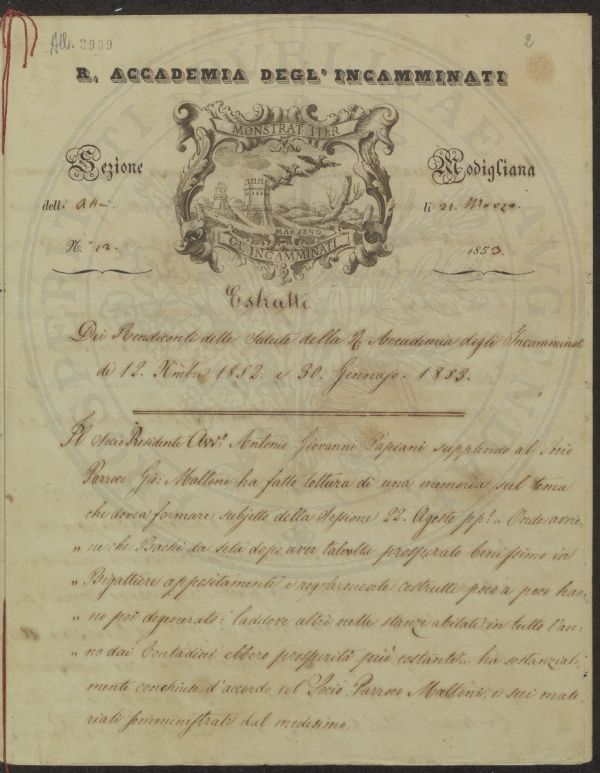 All. 3909
2
R. ACCADEMIA DEGL' INCAMMINATI
MONSTRAT ITER
MARZENO
GL' INCAMMINATI
Sezione
dell: Atti
N.° 12.
Modigliana
li 21. Marzo
1853.
Estratti
Dei Rendiconti delle Sedute della R. Accademia degli Incamminati
di 12. Xmbre 1852. e 30. Gennajo. 1853.
Il Socio Presidente Avv.° Antonio Giovanni Papiani supplendo al Socio
Parroco Gio: Maltoni ha fatto lettura di una memoria sul tema
che dovea formare subjetto della Sessione 22. Agosto pp.° „ Onde avvie-
„ ne che Bachi da seta dopo aver talvolta prosperato benissimo in
„ Bigattiere appositamente e regolarmente costrutte poco a poco han-
„ no poi degenerato: laddove altri nelle stanze abitate in tutto l'an-
„ no dai Contadini ebbero prosperità più costante „ ha sostanzial-
mente conchiuso d'accordo col Socio Parroco Maltoni, e sui mate-
riali somministrati dal medesimo.